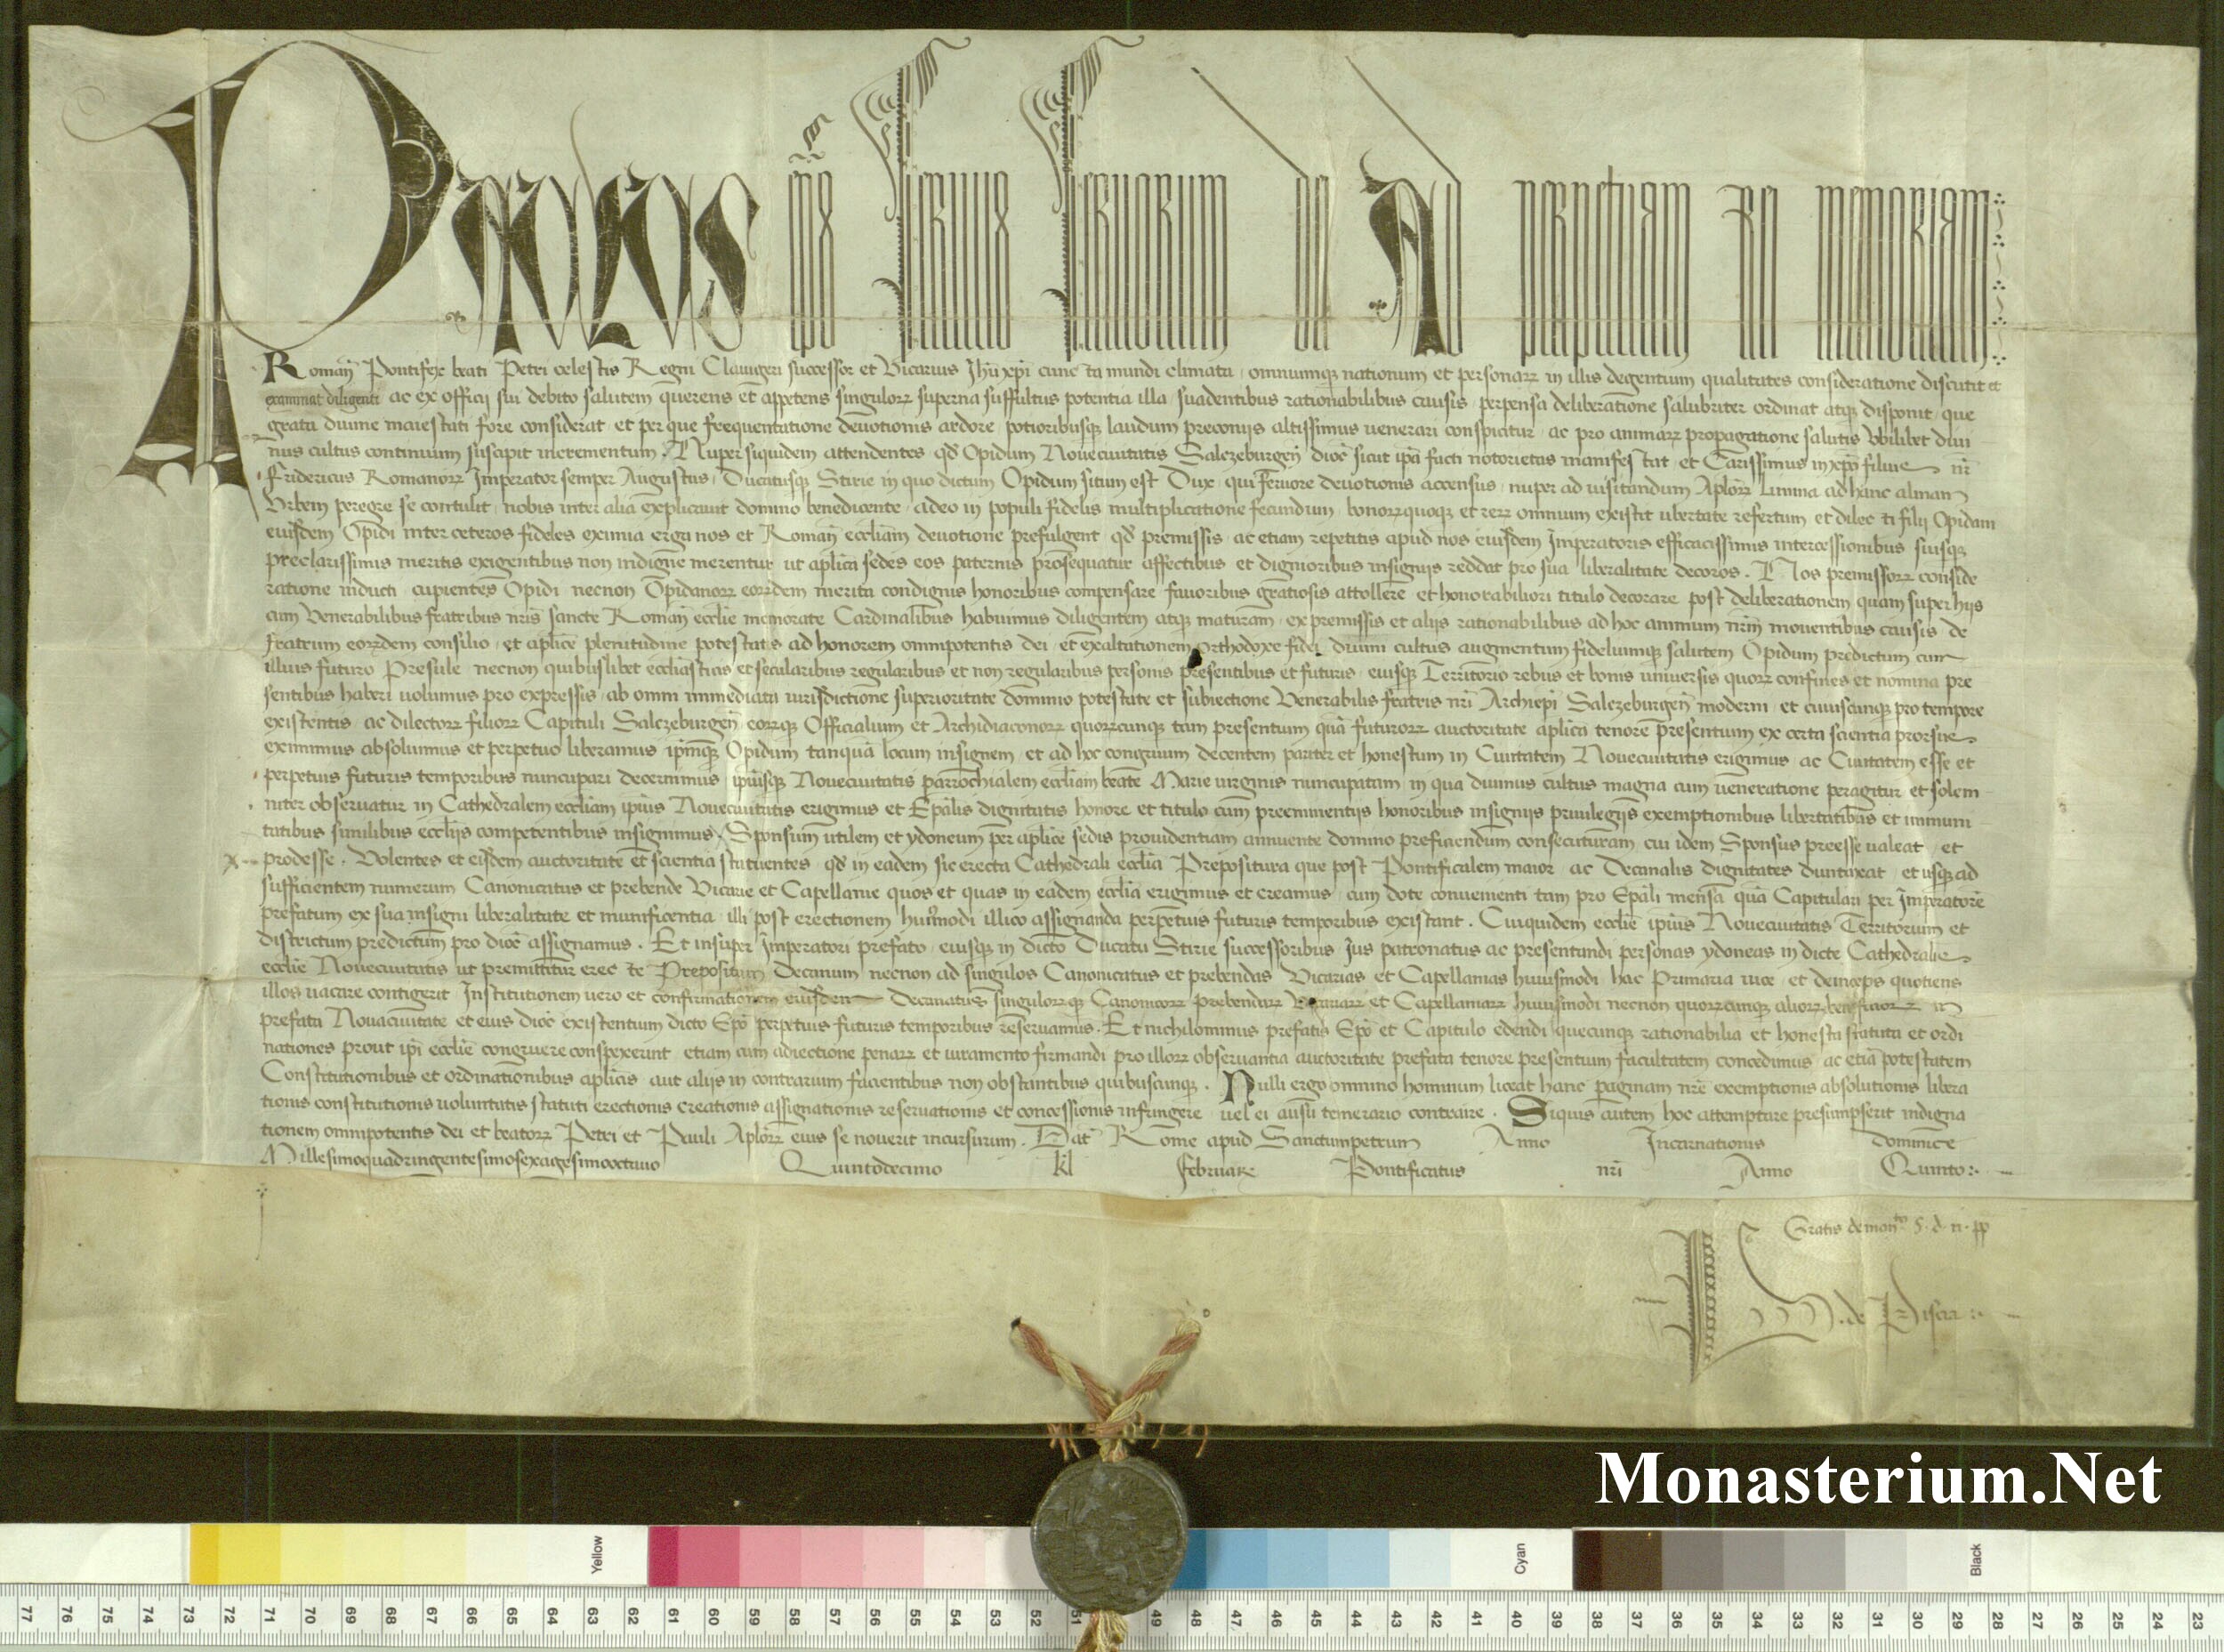 Paulus Epus Servus Servorum dei Ad perpetuam rei memoriam
Roman Pontifex beati Petri celestis Regni Clavigeri successor et Vicarius Jhu xpi cuncta mundi climata omniumq nationum et personarr in illis degentium qualitates consideratione discutit et
examinat diligenti ac ex officij sui debito salutem querens et appetens singulorr superna suffultus potentia illa suadentibus rationabilibus causis perpensa deliberatione salubriter ordinat atq disponit que
grata divine maiestati fore considerat et per que frequentatione devotionis ardore potioribusq laudum preconijs altissimus venerari conspicitur ac pro animarr propagatione salutis Ubilibet divi
nus cultus continuum suscipit incrementum. Nuper siquidem attendentes qd Opidum Novecivitatis Salczeburgen dioc sicut ipa facti notorietas manifestat et Carissimus in xpo filius nr
Fridericus Romanorr Imperator semper Augustus Ducatusq Stirie in quo dictum Opidum situm est Dux qui fervore devotionis accensus nuper ad visitandum Aplorr Limina ad hanc almam
Urbem peregre se contulit nobis inter alia explicavit domino benedicente adeo in populi fidelis multiplicatione fecundum bonorrquoq et rerr omnium existit ubertate refertum et dilecti filij Opidani
eiusdem Opidi inter ceteros fideles eximia erga nos et Roman eccliam devotione prefulgent qd premissis ac etiam repetitis apud nos eiusdem Imperatoris efficacissimis intercessionibus suisq
preclarissimis meritis exigentibus non indigne merentur ut aplica sedes eos paternis prosequatur affectibus et dignioribus insignijs reddat pro sua liberalitate decoros. Nos premissorr conside
ratione inducti cupientes Opidi necnon Opidanorr eorrdem merita condignis honoribus compensare favoribus gratiosis attollere et honorabiliori titulo decorare post deliberationem quam super hijs
cum Venerabilibus fratribus nris sancte Roman ecclie memorate Cardinalibus habuimus diligentem atq maturam ex premissis et alijs rationabilibus ad hoc animum nrm moventibus causis de
fratrum eorrdem consilio et aplice plenitudine potestatis ad honorem omnipotentis dei et exaltationem orthodoxe fidei divini cultus augmentum fideliumq salutem Opidum predictum cum
illius futuro Presule necnon quibuslibet ecclasticis et secularibus regularibus et non regularibus personis presentibus et futuris eiusq Territorio rebus et bonis universis quorr confines et nomina pre
sentibus haberi volumus pro expressis ab omni immediata iurisdictione superioritate dominio potestate et subiectione Venerabilis fratris nri Archiepi Salczeburgen moderni et cuiuscunq pro tempore
existentis ac dilectorr filiorr Capituli Salczeburgen eorrq Officialium et Archidiaconorr quorrcunq tam presentum qua futurorr auctoritate aplica tenore presentium ex certa scientia prorsus
eximimus absolvimus et perpetuo liberamus ipmq Opidum tanqua locum insignem et ad hoc congruum decentem pariter et honestum in Civitatem Novecivitatis erigimus ac Civitatem esse et
perpetuis futuris temporibus nuncupari decernimus ipiusq Novecivitatis parrochialem eccliam beate Marie virginis nuncupatam in qua divinus cultus magna cum veneratione peragitur et solem
niter observatur in Cathedralem eccliam ipius Novecivitatis erigimus et Epalis dignitatis honore et titulo cum preeminentijs honoribus insignijs privilegijs exemptionibus libertatibus et immuni
tatibus similibus ecclijs competentibus insignimus. Sponsum utilem et ydoneum per aplice sedis providentiam annuente domino preficiendum consecuturam cui idem Sponsus preesse valeat et
prodesse. Volentes et eisdem auctoritate et scientia statuentes qd in eadem sic erecta Cathedrali ecclia Prepositura que post Pontificalem maior ac Decanalis dignitates duntaxat et usq ad
sufficientem numerum Canonicatus et prebende Vicarie et Capellanie quos et quas in eadem ecclia erigimus et creamus cum dote convenienti tam pro Epali mensa qua Capitulari per Imperatore
prefatum ex sua insigni liberalitate et munificentia illi post erectionem huiusmodi illico assignanda perpetuis futuris temporibus existant. Cuiquidem ecclie ipius Novecivitatis Territorium et
districtum predictum pro dioc assignamus. Et insuper Imperatori prefato eiusq in dicto Ducatu Stirie successoribus Ius patronatus ac presentandi personas ydoneas in dicte Cathedralis
ecclie Novecivitatis ut premittitur erecte Prepositum Decanum necnon ad singulos Canonicatus et prebendas Vicarias et Capellanias huiusmodi hac Primaria vice et deinceps quotiens
illos vacare contigerit Institutionem vero et confirmationem eiusdem Decanatus singulorrq Canonicorr prebendarr Vicariarr et Capellaniarr huiusmodi necnon quorrcunq aliorr beneficiorr in
prefata Novacivitate et eius dioc existentium dicto Epo perpetuis futuris temporibus reservamus. Et nichilominus prefatis Epo et Capitulo edendi quecunq rationabilia et honesta statuta et ordi
nationes prout ipi ecclie congruere conspexerint etiam cum adiectione penarr et iuramento firmandi pro illorr observantia auctoritate prefata tenore presentium facultatem concedimus ac etia potestatem
Constitutionibus et ordinationibus aplicis aut alijs in contrarium facientibus non obstantibus quibuscunq. Nulli ergo omnino hominum liceat hanc paginam nre exemptionis absolutionis libera
tionis constitutionis voluntatis statuti erectionis creationis assignationis reservationis et concessionis infringere vel ei ausu temerario contraire. Siquis autem hoc attemptare presumpserit indigna
tionem omnipotentis dei et beatorr Petri et Pauli Aplorr eius se noverit incursurum. Dat Rome apud Sanctumpetrum Anno Incarnationis dominice
Millesimoquadringentesimosexagesimooctavo Quintodecimo kl februarii Pontificatus nri Anno Quinto
Gratis de manto s. d. n. pp
de Piscia
Monasterium.Net
Yellow
Cyan
Black
77 76 75 74 73 72 71 70 69 68 67 66 65 64 63 62 61 60 59 58 57 56 55 54 53 52 51 49 48 47 46 45 44 43 42 41 40 39 38 37 36 35 34 33 32 31 30 29 28 27 26 25 24 23